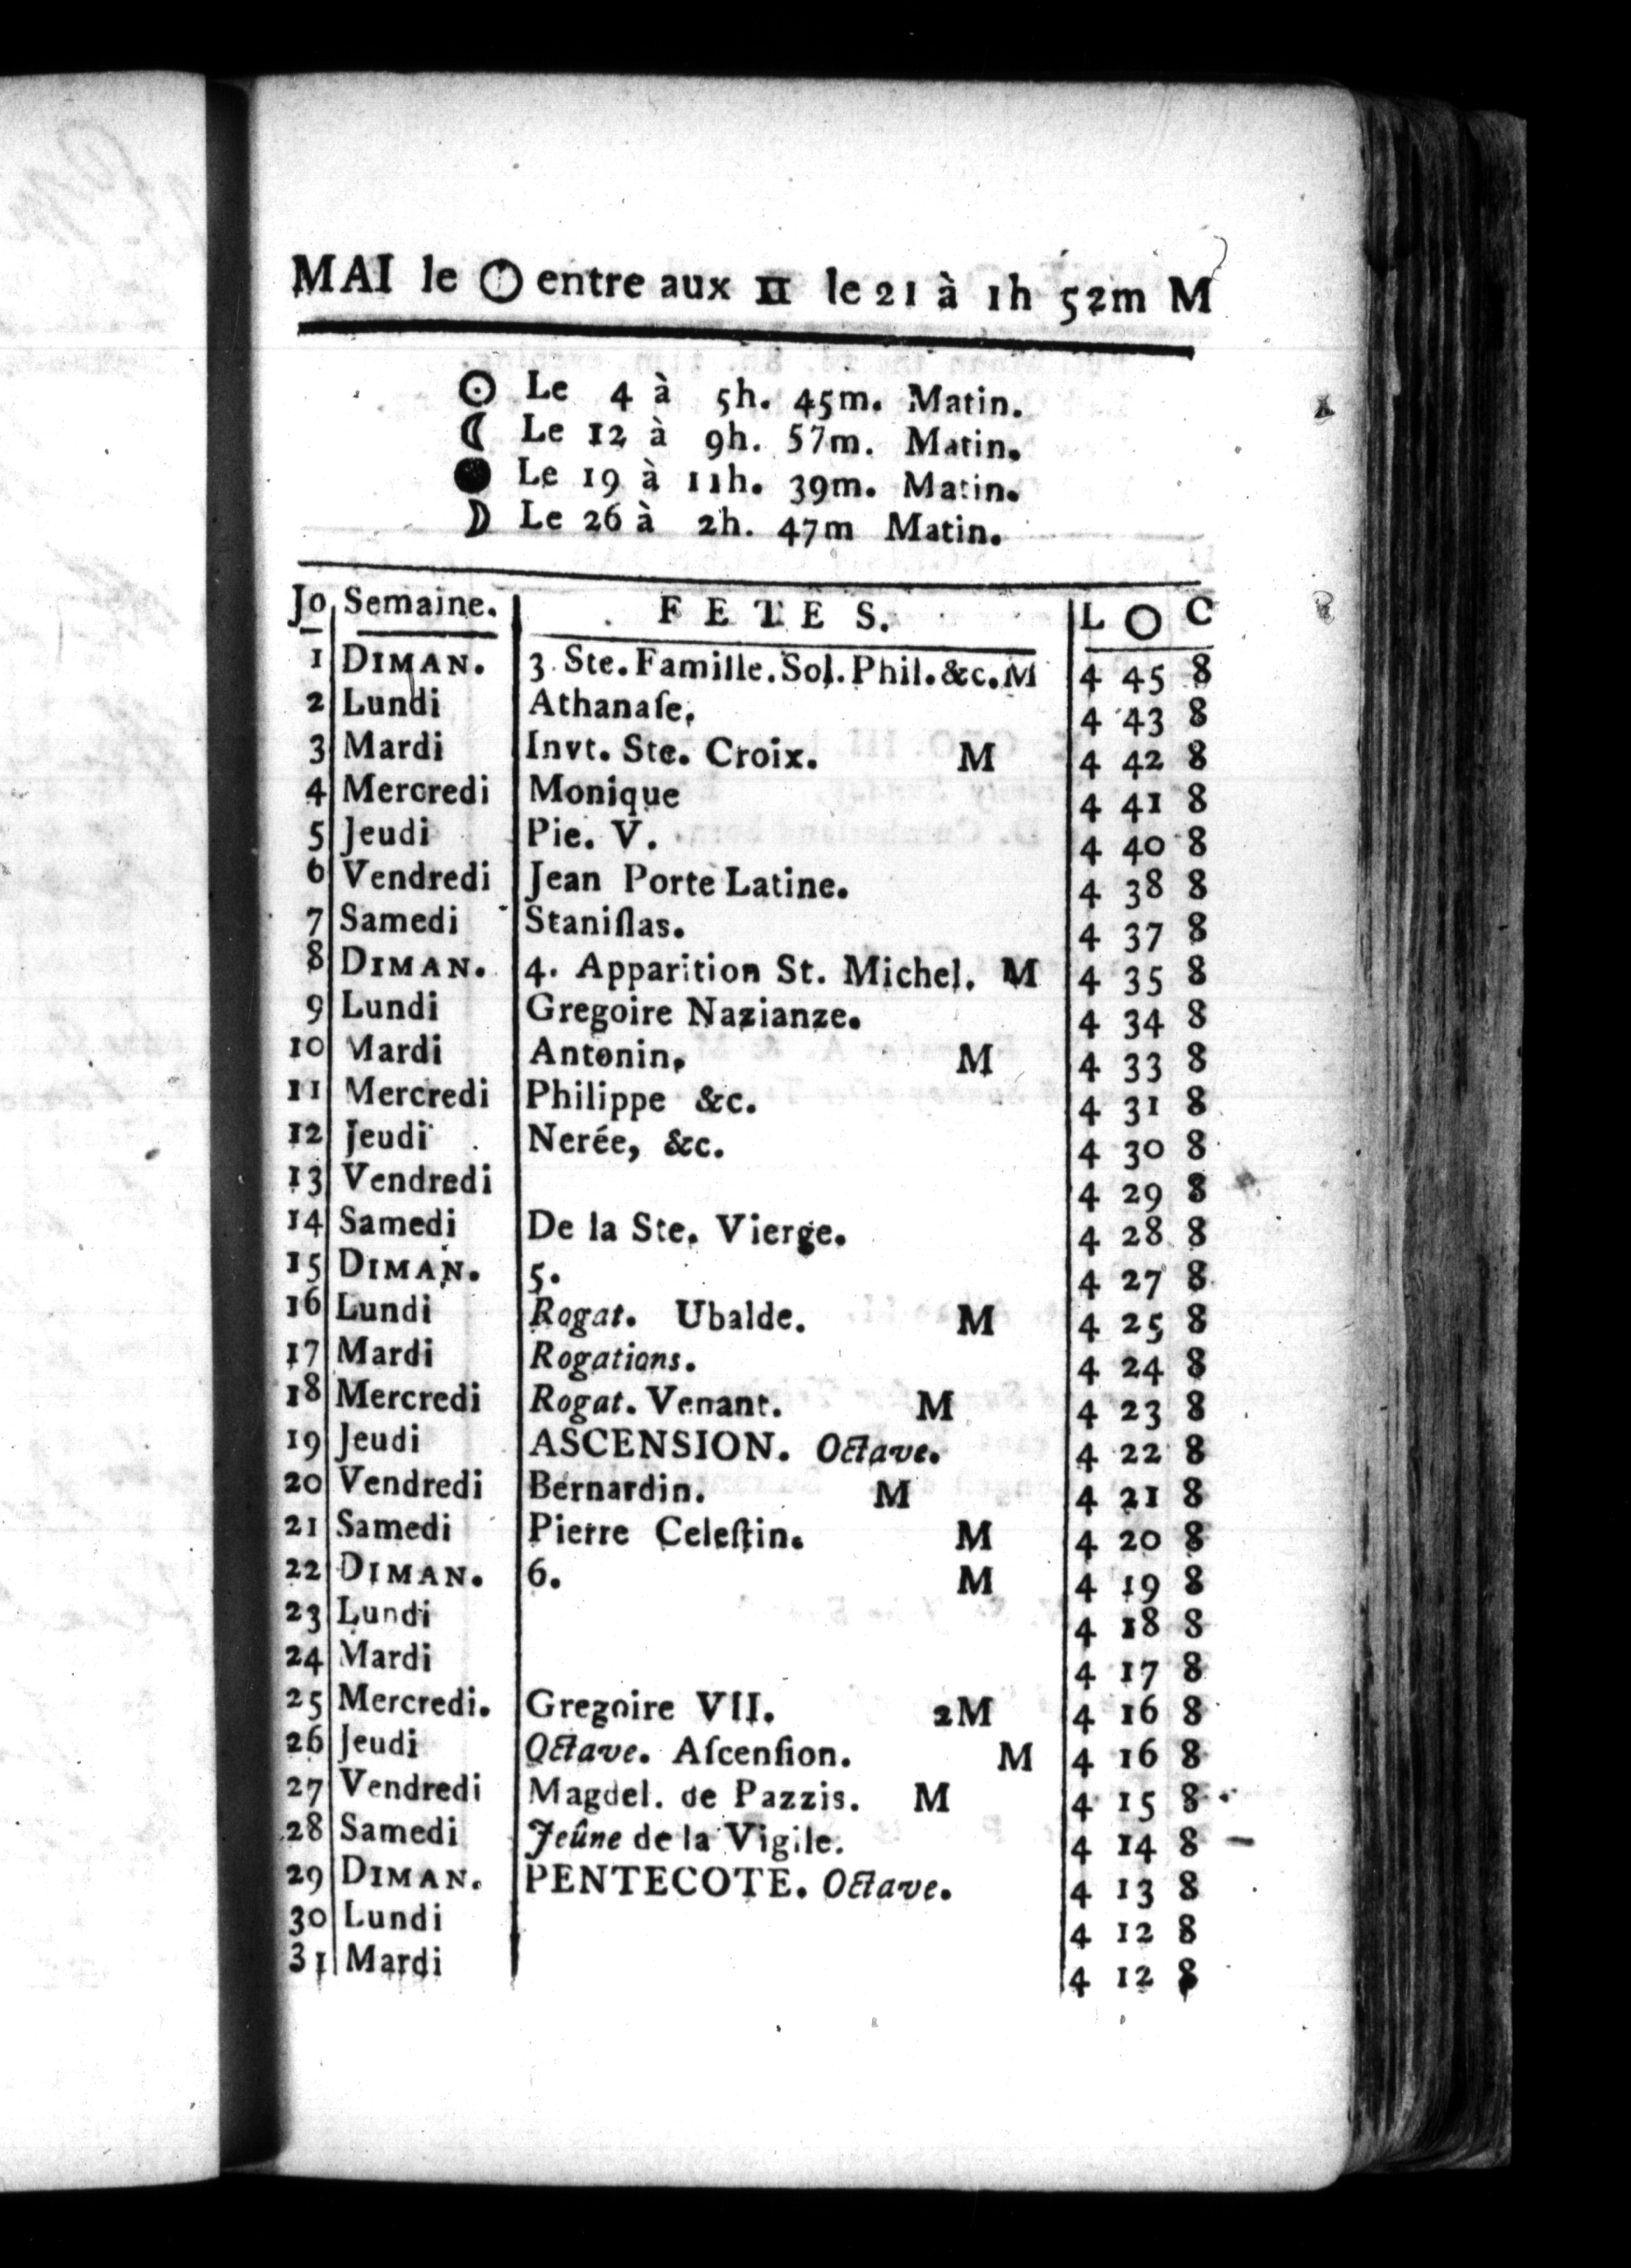 MAI le ☉ entre aux II le 21 à 1h 52m M
☉ Le 4 à 5h. 45m. Matin.
☾ Le 12 à 9h. 57m. Matin.
● Le 19 à 11h. 39m. Matin.
☽ Le 26 à 2h. 47m Matin.
Jo Semaine. FETES. L O C
1 DIMAN. 3 Ste. Famille. Sol. Phil. &c. M 4 45 8
2 Lundi Athanaſe. 4 43 8
3 Mardi Invt. Ste. Croix. M 4 42 8
4 Mercredi Monique 4 41 8
5 Jeudi Pie. V. 4 40 8
6 Vendredi Jean Porte Latine. 4 38 8
7 Samedi Staniſlas. 4 37 8
8 DIMAN. 4. Apparition St. Michel. M 4 35 8
9 Lundi Gregoire Nazianze. 4 34 8
10 Mardi Antonin, M 4 33 8
11 Mercredi Philippe &c. 4 31 8
12 Jeudi Nerée, &c. 4 30 8
13 Vendredi 4 29 8
14 Samedi De la Ste. Vierge. 4 28 8
15 DIMAN. 5. 4 27 8
16 Lundi Rogat. Ubalde. M 4 25 8
17 Mardi Rogations. 4 24 8
18 Mercredi Rogat. Venant. M 4 23 8
19 Jeudi ASCENSION. Octave. 4 22 8
20 Vendredi Bernardin. M 4 21 8
21 Samedi Pierre Celeſtin. M 4 20 8
22 DIMAN. 6. M 4 19 8
23 Lundi 4 18 8
24 Mardi 4 17 8
25 Mercredi. Gregoire VII. 2M 4 16 8
26 Jeudi Octave. Aſcenſion. M 4 16 8
27 Vendredi Magdel. de Pazzis. M 4 15 8
28 Samedi Jeûne de la Vigile. 4 14 8
29 DIMAN. PENTECOTE. Octave. 4 13 8
30 Lundi 4 12 8
31 Mardi 4 12 8